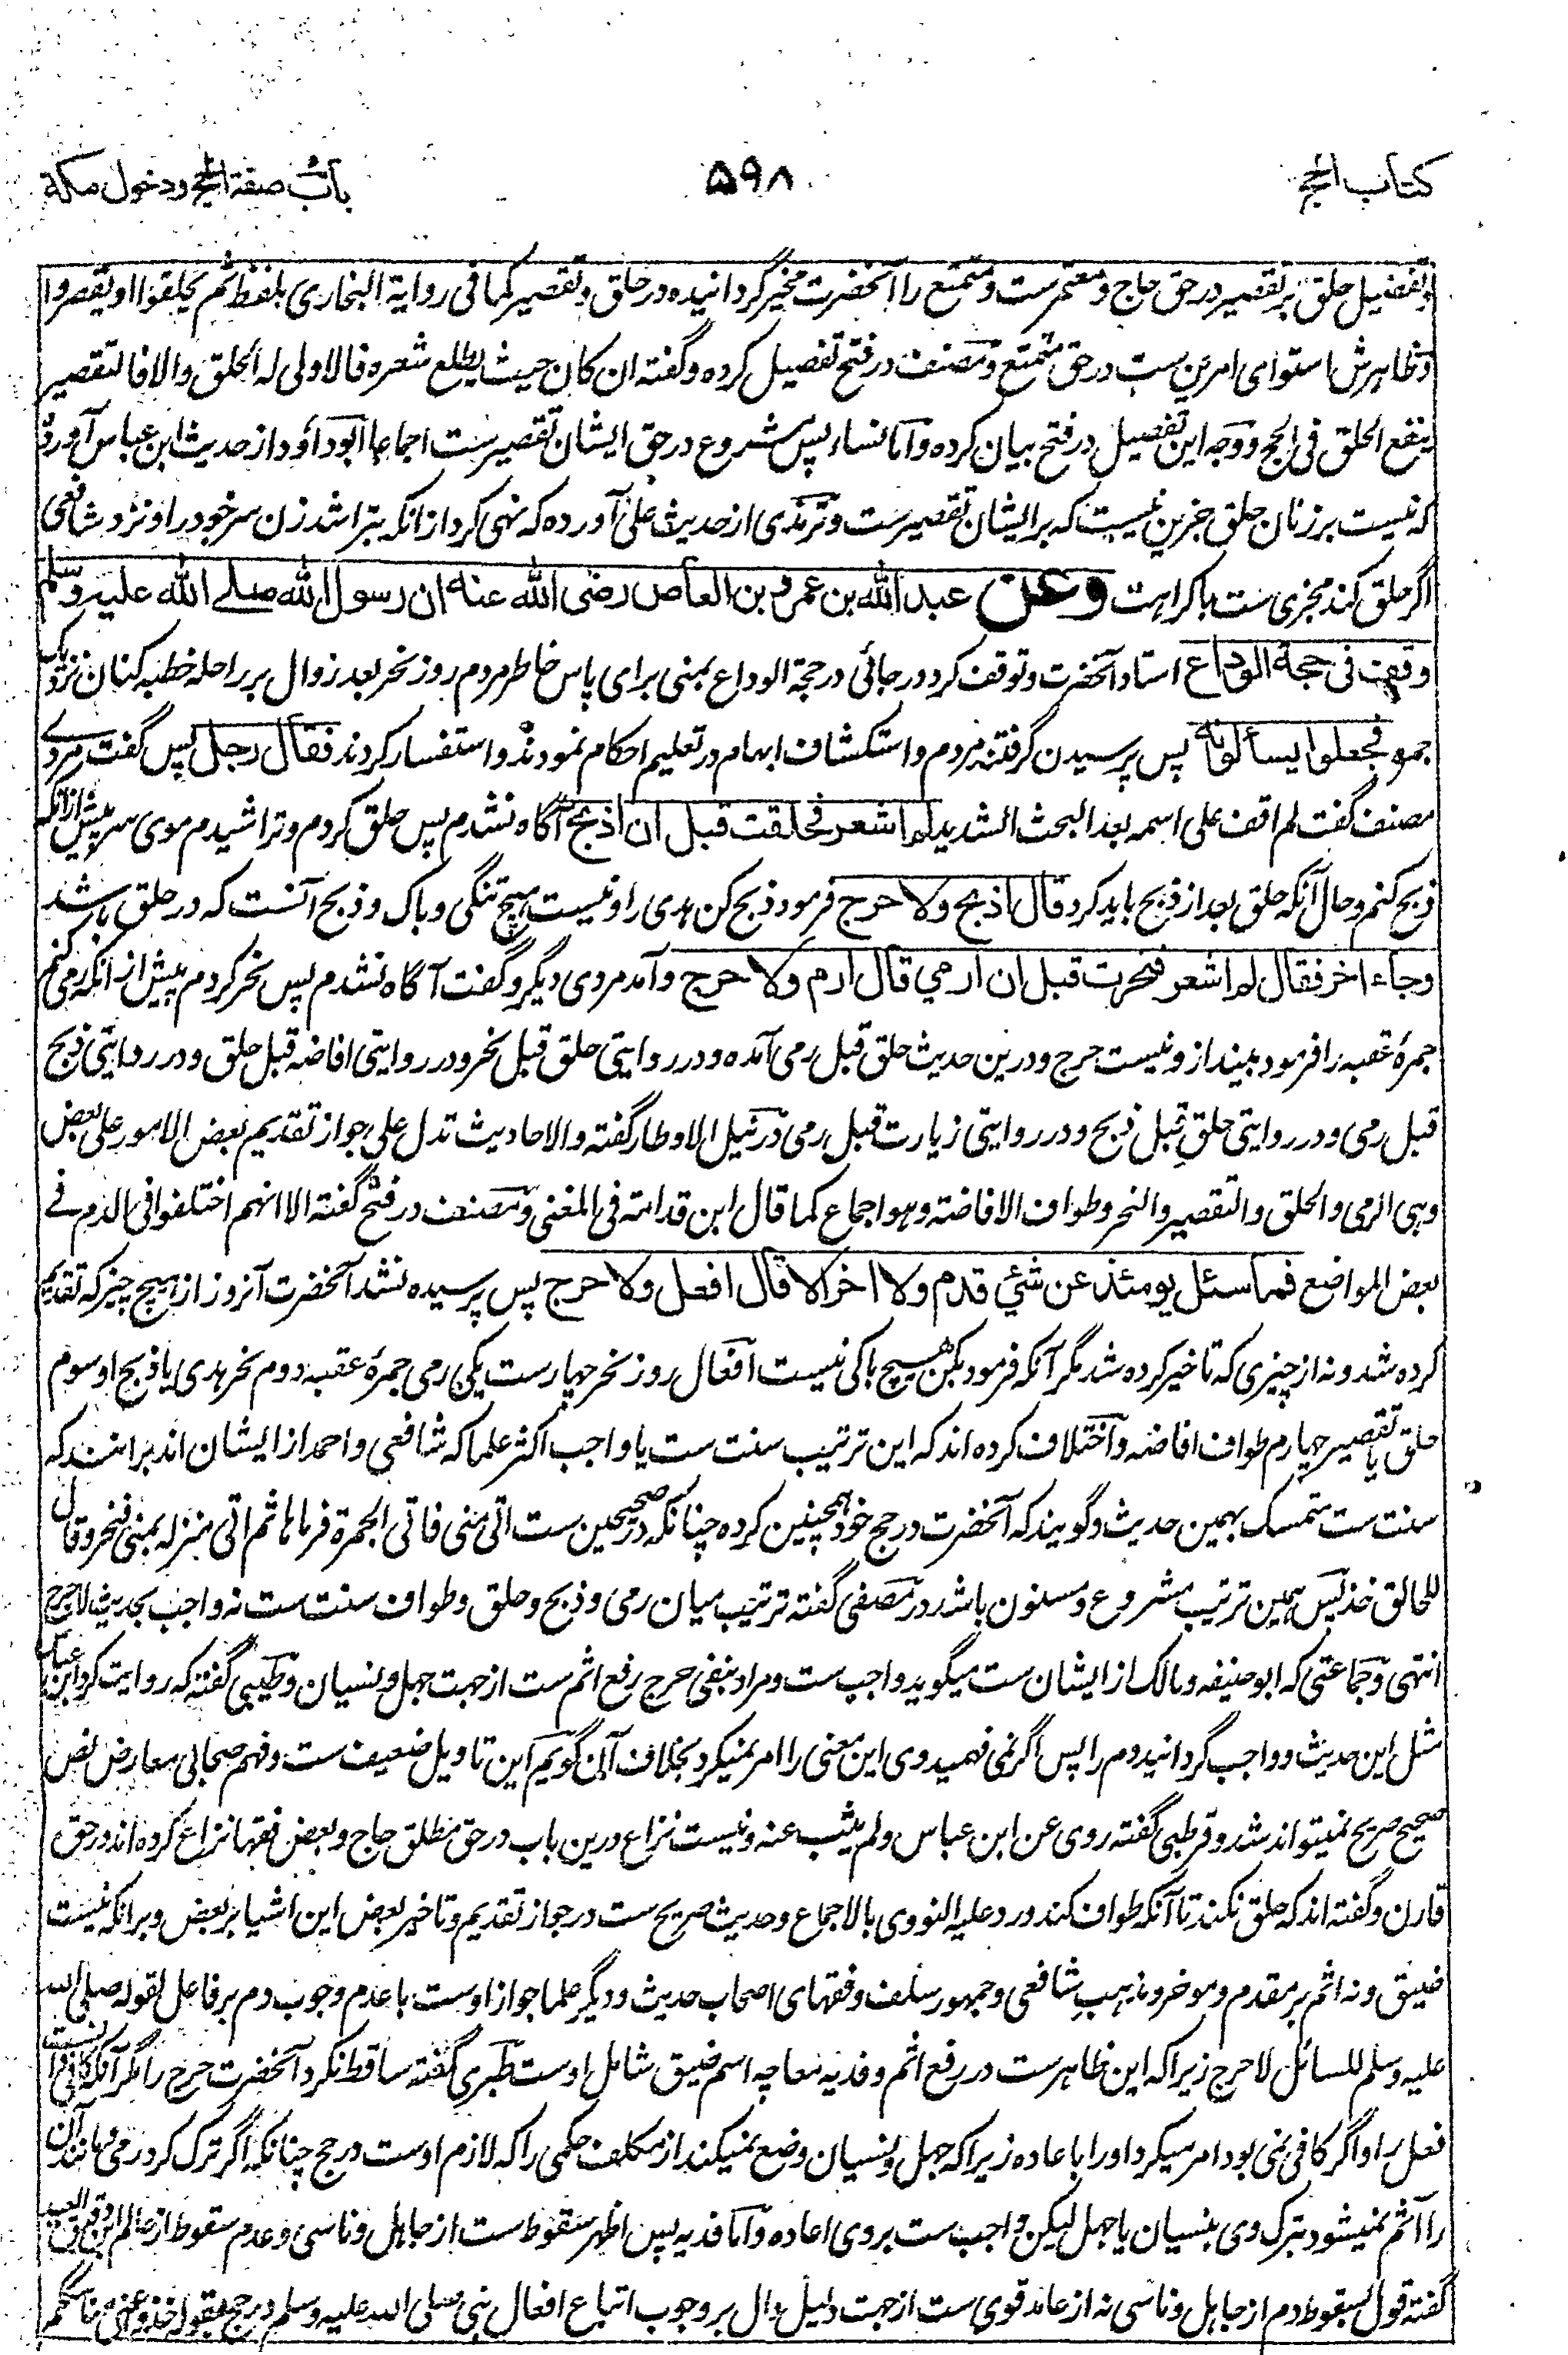 كتاب الحج
۵۹۸
باب صفة الحج ودخول مكة
وتفضیل حلق بر تقصیر در حق حاج و معتمرست و متمتع را آنحضرت مخیر گردانیده در حلق و تقصیر کما فی روایة البخاری بلفظ ثم یحلقوا او یقصروا
وظاهرش استوای امرین ست در حق متمتع و مصنف در فتح تفصیل کرده و گفته ان کان حیث یطلع شعره فالاولی له الحلق والا فالتقصیر
لیقع الحلق فی الحج و وجه این تفصیل در فتح بیان کرده و اما نساء پس مشروع در حق ایشان تقصیرست اجماعا ابوداؤد از حدیث ابن عباس آورده
که نیست بر زنان حلق جزین نیست که بر ایشان تقصیرست و ترمذی از حدیث علی آورده که نهی کرد از انکه بتراشد زن سر خود را و نزد شافعی
اگر حلق کند مجزی ست باکراهت وعن عبد الله بن عمرو بن العاص رضی الله عنه ان رسول الله صلے الله علیه وسلم
وقف فی حجة الوداع استاد آنحضرت و توقف کرد در جائی در حجة الوداع بمنی برای پاس خاطر مردم روز نحر بعد زوال بر راحله خطبه کنان نزدیک
جمره فجعلوا یسألونه پس پرسیدن گرفتند مردم و استکشاف ابهام در تعلیم احکام نمودند و استفسار کردند فقال رجل پس گفت مردے
مصنف گفت لم اقف علی اسمه بعد البحث الشدید لم اشعر فحلقت قبل ان اذبح آگاه نشدم پس حلق کردم و تراشیدم موی سر پیش از انکه
ذبح کنم و حال آنکه حلق بعد از ذبح باید کرد قال اذبح ولا حرج فرمود ذبح کن هدی را و نیست هیچ تنگی و باک و ذبح آنست که در حلق باشد
وجاء اخر فقال لم اشعر فنحرت قبل ان ارمي قال ارم ولا حرج و آمد مردی دیگر و گفت آگاه نشدم پس نحر کردم پیش از انکه رمی کنم
جمرۀ عقبه را فرمود بینداز و نیست حرج و درین حدیث حلق قبل رمی آمده و در روایتی حلق قبل نحر و در روایتی افاضه قبل حلق و در روایتی ذبح
قبل رمی و در روایتی حلق قبل ذبح و در روایتی زیارت قبل رمی در نیل الاوطار گفته والاحادیث تدل علی جواز تقدیم بعض الامور علی بعض
وهی الرمی والحلق والتقصیر والنحر وطواف الافاضة وهو اجماع کما قال ابن قدامة فی المغنی و مصنف در فتح گفته الا انهم اختلفوا فی الدم فے
بعض المواضع فما سئل یومئذ عن شئ قدم ولا اخر الا قال افعل ولا حرج پس پرسیده نشد آنحضرت آنروز از هیچ چیز که تقدیم
کرده شد و نه از چیزی که تاخیر کرده شد مگر آنکه فرمود بکن هیچ باکی نیست افعال روز نحر چهارست یکی رمی جمرۀ عقبه دوم نحر هدی یا ذبح او سوم
حلق یا تقصیر چهارم طواف افاضه و اختلاف کرده اند که این ترتیب سنت ست یا واجب اکثر علما که شافعی و احمد از ایشان اند برانند که
سنت ست متمسک بهمین حدیث و گویند که آنحضرت در حج خود همچنین کرده چنانکه در صحیحین ست اتی منی فاتی الجمرة فرماها ثم اتی منزله بمنی فنحر وقال
للحالق خذ پس همین ترتیب مشروع و مسنون باشد در مصفی گفته ترتیب میان رمی و ذبح و حلق و طواف سنت ست نه واجب بحدیث لا حرج
انتهی و جماعتی که ابو حنیفه و مالک از ایشان ست میگوید واجب ست و مراد بنفی حرج رفع اثم ست از جهت جهل و نسیان و طیبی گفته که روایت کرد ابن عباس
مثل این حدیث و واجب گردانید دم را پس اگر نمی فهمید وی این معنی را امر نمیکرد بخلاف آن گویم این تاویل ضعیف ست و فهم صحابی معارض نص
صحیح صریح نمیتواند شد و قرطبی گفته روی عن ابن عباس ولم یثبت عنه و نیست نزاع درین باب در حق مطلق حاج و بعض فقها نزاع کرده اند در حق
قارن و گفته اند که حلق نکند تا آنکه طواف کند ورد علیه النووی بالاجماع و حدیث صریح ست در جواز تقدیم و تاخیر بعض این اشیا بر بعض و برانکه نیست
ضیق و نه اثم بر مقدم و موخر و مذهب شافعی و جمهور سلف و فقهای اصحاب حدیث و دیگر علما جواز اوست با عدم وجوب دم بر فاعل لقوله صلی الله
علیه وسلم للسائل لا حرج زیرا که این ظاهرست در رفع اثم و فدیه معا چه اسم ضیق شامل اوست طبری گفته ساقط نکرد آنحضرت حرج را مگر آنکه کافی ست
فعل را و اگر کافی نمی بود امر میکرد او را باعاده زیرا که جهل و نسیان وضع نمیکند از مکلف حکمی را که لازم اوست در حج چنانکه اگر ترک کرد رمی و مانند آن
را آثم نمیشود بترک وی بنسیان یا جهل لیکن واجب ست بروی اعاده و اما فدیه پس اظهر سقوط ست از جاهل و ناسی و عدم سقوط از عالم ابن دقیق العید
گفته قول بسقوط دم از جاهل و ناسی نه از عامد قوی ست از جهت دلیل دال بر وجوب اتباع افعال نبی صلی الله علیه وسلم در حج بقوله خذوا عنی مناسککم